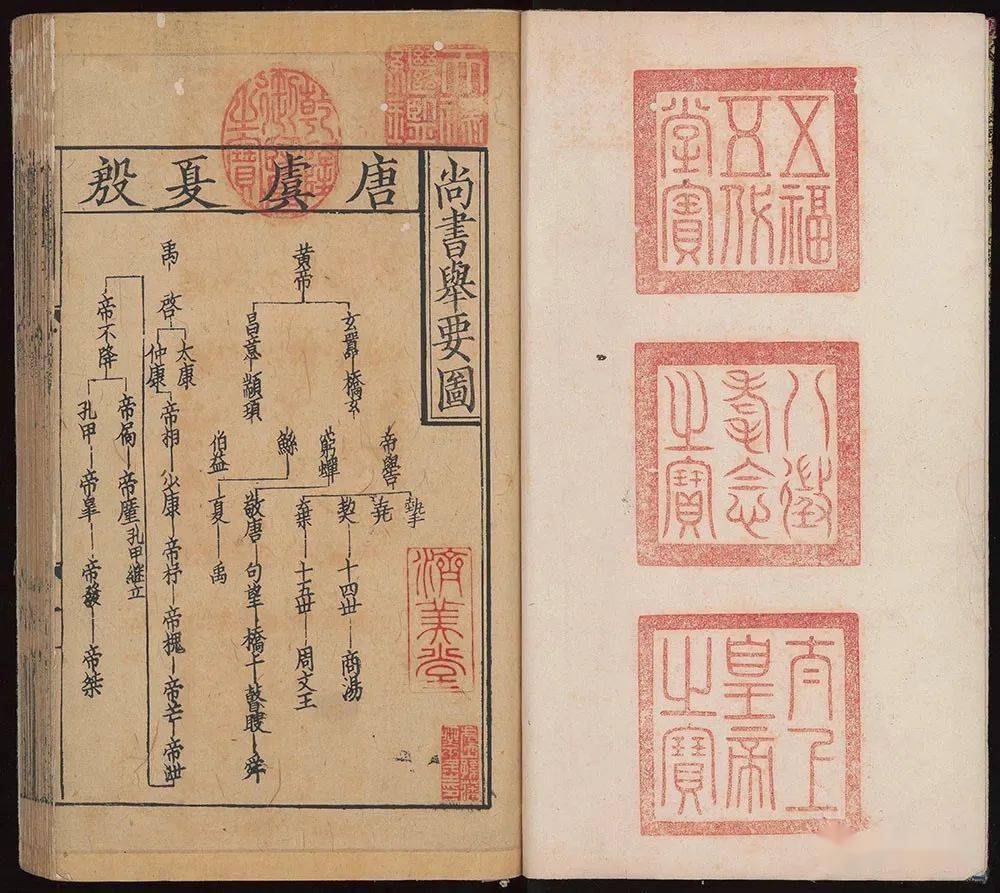 五福
五代
堂寶
八徵
耄念
之寶
太上
皇帝
之寶
天祿
繼鑑
乾隆
御覽
之寶
尚書舉要圖
唐虞夏殷
黄帝
玄囂 橋玄
昌意 顓頊
帝嚳
窮蟬
鯀
伯益
摯
堯
契 十四丗 商湯
棄 十五丗 周文王
敬唐 句望 橋牛 瞽瞍 舜
夏 禹
禹
啓
太康
仲康
帝相 少康 帝杼 帝槐 帝芒 帝泄
帝不降
帝扃 帝廑 孔甲継立
孔甲 帝皐 帝發 帝桀
濟美堂